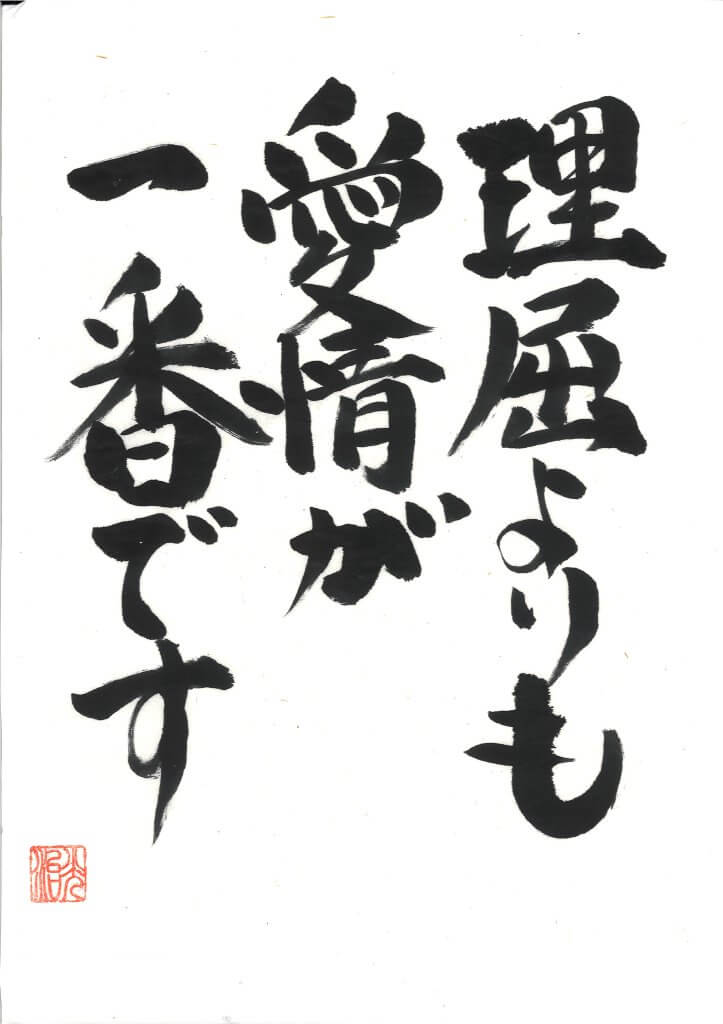 理屈よりも
愛情が
一番です